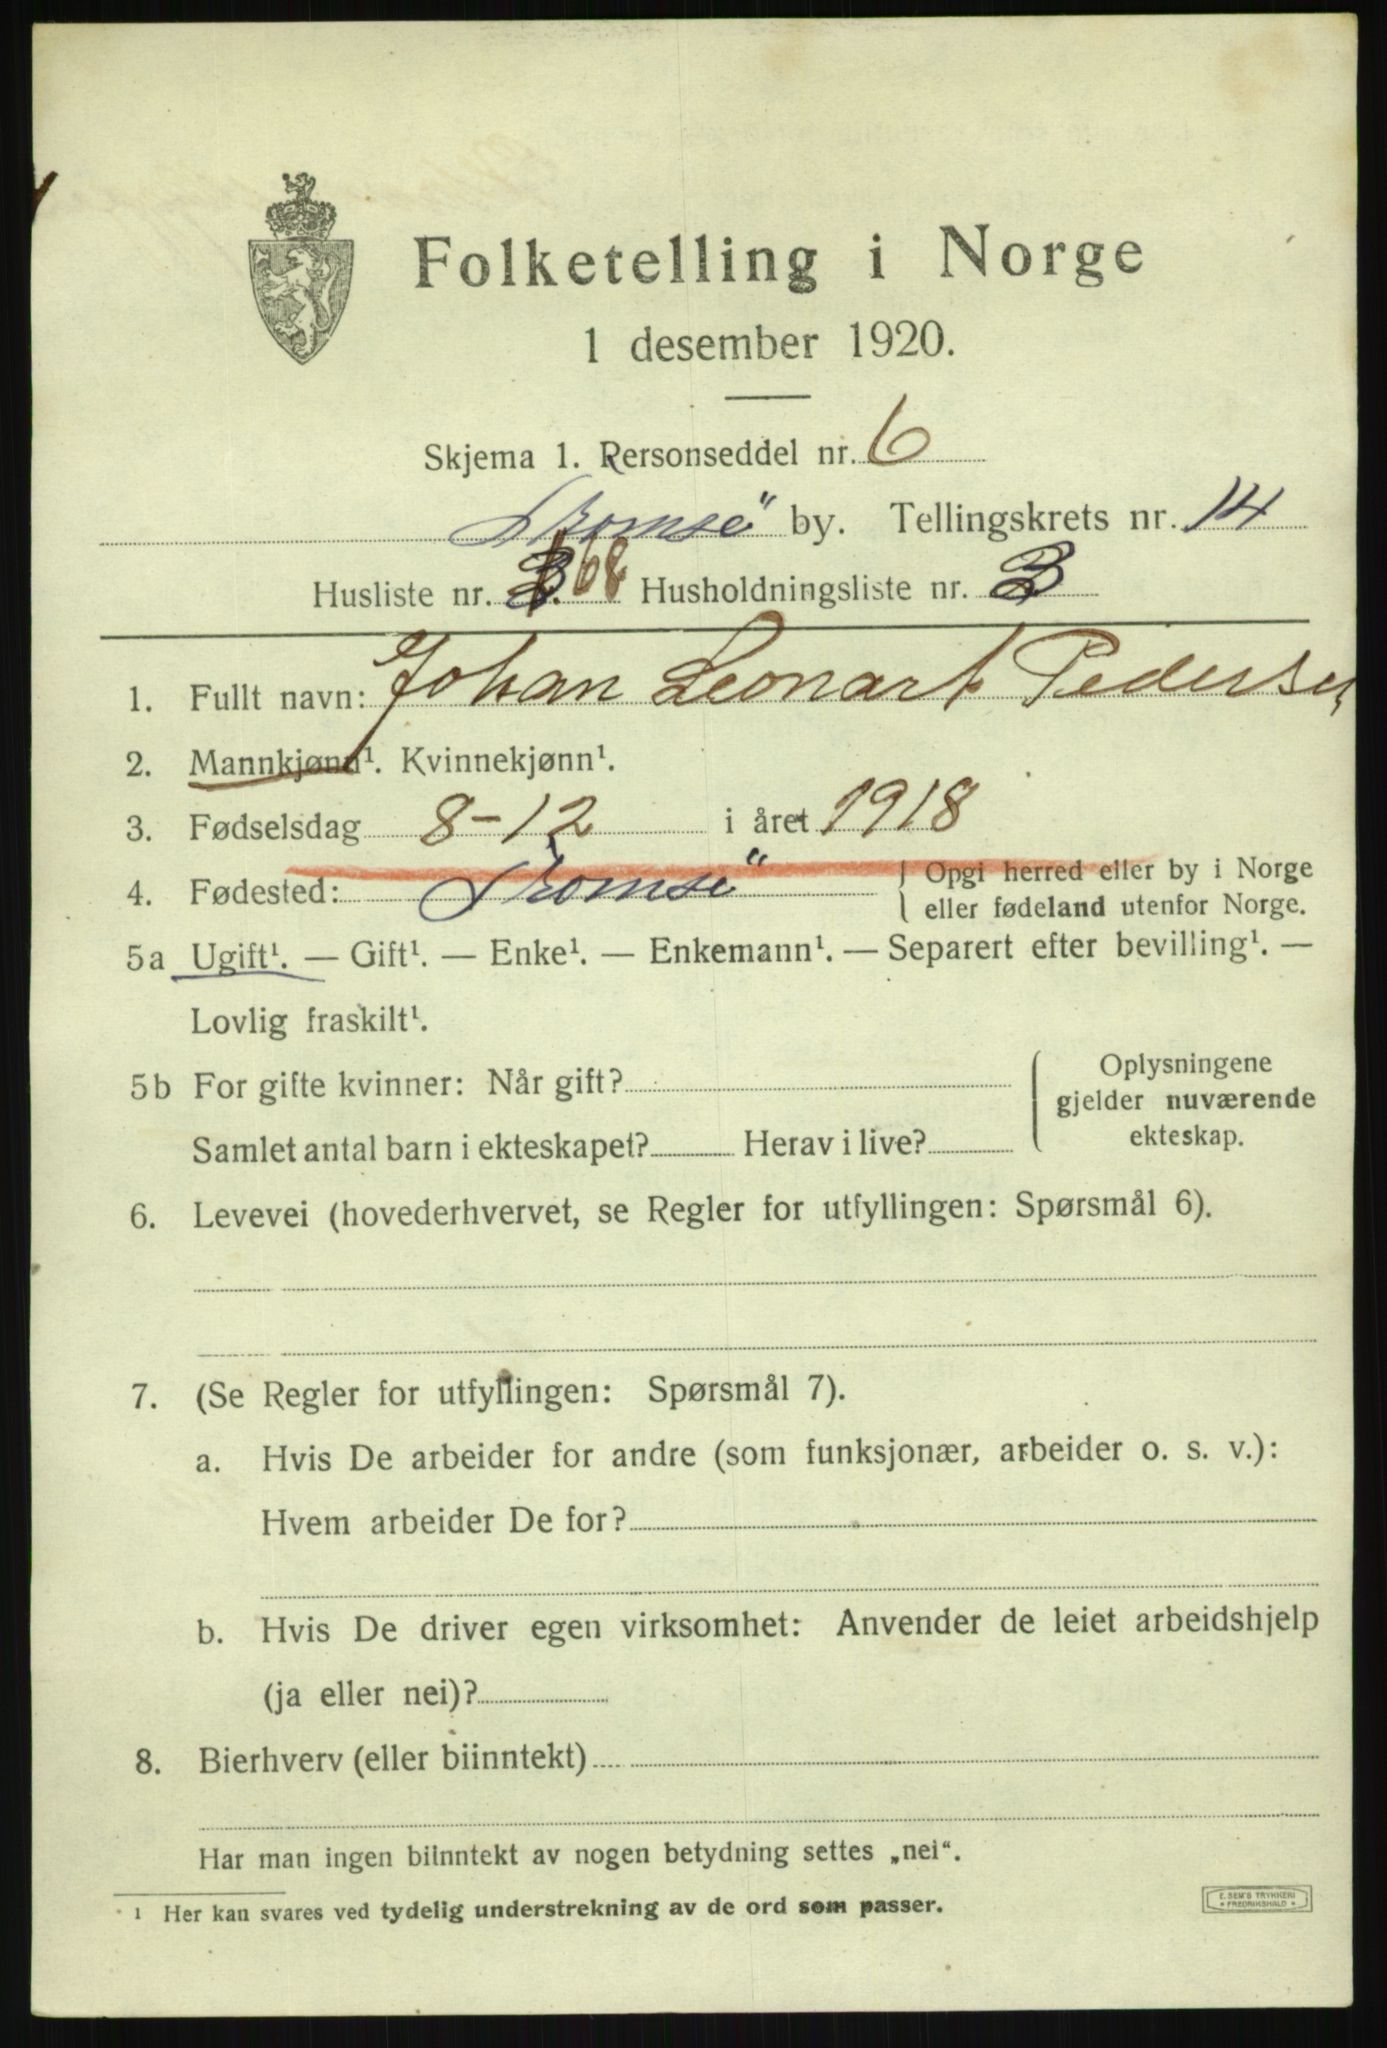 Folketelling i Norge
1 desember 1920.
Skjema 1. Personseddel nr. 6
Tromsö by. Tellingskrets nr. 14
Husliste nr. 68 Husholdningsliste nr. 3
1. Fullt navn: Johan Leonart Pedersen
2. Mannkjønn¹. Kvinnekjønn¹.
3. Fødselsdag 8-12 i året 1918
4. Fødested: Tromsö { Opgi herred eller by i Norge
eller fødeland utenfor Norge.
5a Ugift¹. — Gift¹. — Enke¹. — Enkemann¹. — Separert efter bevilling¹. —
Lovlig fraskilt¹.
5b For gifte kvinner: Når gift?
Samlet antal barn i ekteskapet? Herav i live?
{ Oplysningene
gjelder nuværende
ekteskap.
6. Levevei (hovederhvervet, se Regler for utfyllingen: Spørsmål 6).
7. (Se Regler for utfyllingen: Spørsmål 7).
a. Hvis De arbeider for andre (som funksjonær, arbeider o. s. v.):
Hvem arbeider De for?
b. Hvis De driver egen virksomhet: Anvender de leiet arbeidshjelp
(ja eller nei)?
8. Bierhverv (eller biinntekt)
Har man ingen biinntekt av nogen betydning settes „nei“.
¹ Her kan svares ved tydelig understrekning av de ord som passer.
E. SEM'S TRYKKERI
* FREDRIKSHALD *